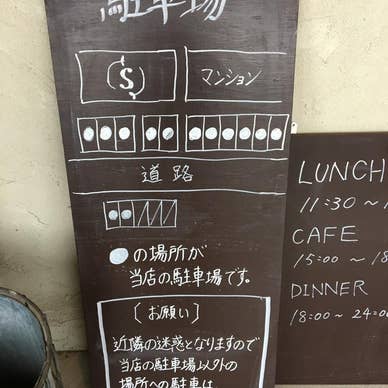 駐車場
S
マンション
道路
●の場所が
当店の駐車場です。
〔お願い〕
近隣の迷惑となりますので
当店の駐車場以外の
場所への駐車は
LUNCH
11:30 ~ 1
CAFE
15:00 ~ 18
DINNER
18:00 ~ 24:00